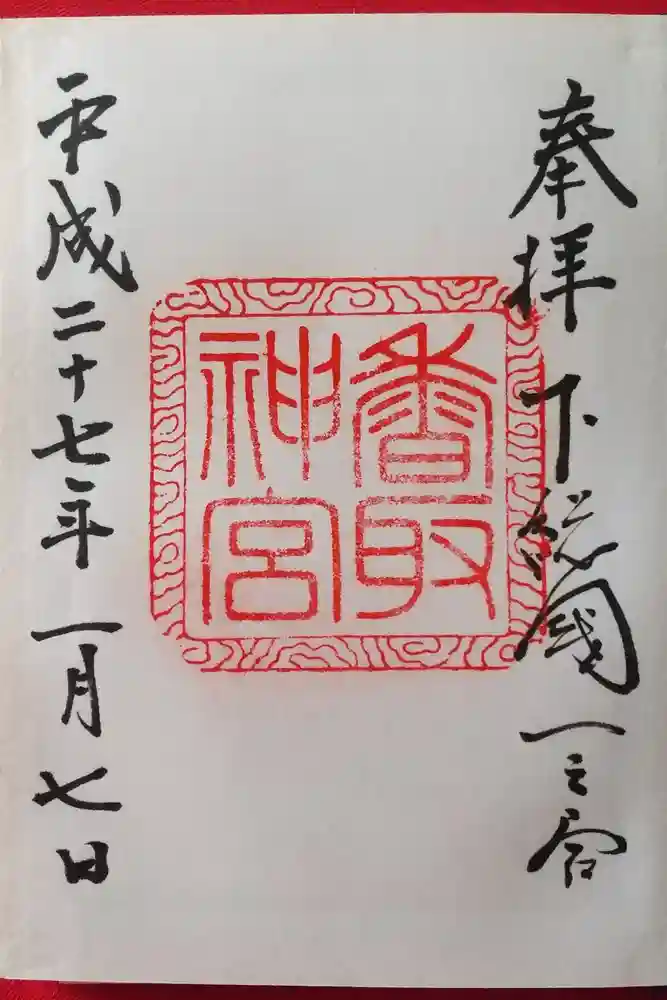 奉拝 下総國一之宮
香取
神宮
平成二十七年 一月七日